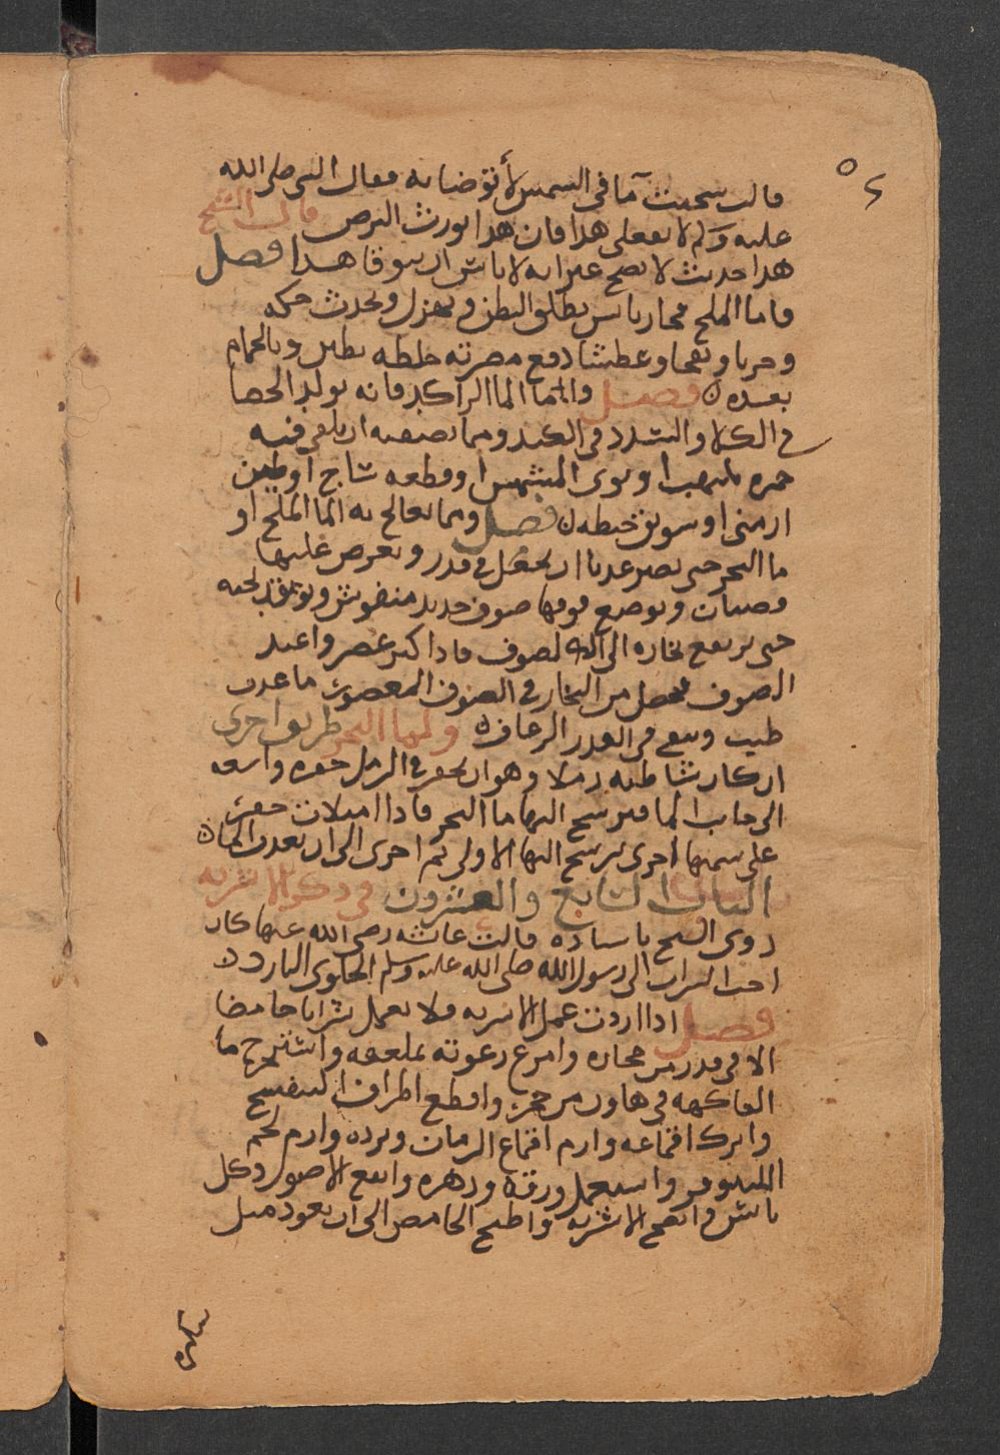 ٥٤
قالت سخنت ماء في الشمس لأتوضا به فقال النبي صلى الله
عليه وسلم لا تفعلي هذا فان هذا يورث البرص قال الشيخ
هذا حديث لا يصح غير انه لا باس ان يتوقا هذا فصل
فاما الملح فحار يابس يطلق البطن ويهزل ويحدث حكه
وجربا ونفخا وعطشا دفع مضرته خلطه بطين وبالحمام
بعده فصل واما الما الراكد فانه يولد الحصا
في الكلا والسدد في الكبد ومما يصفيه ان يلقى فيه
جمره تلتهب او نوى المشمش او قطعه ساج او طين
ارمني او سويق حنطه فصل ومما يعالج به الما الملح او
ما البحر حتى يصير عذبا ان يجعل في قدر ويعرض عليها
قصبات ويوضع فوقها صوف جديد منفوش ويوقد تحته
حتى يرتفع بخاره الى الصوف فاذا كثر عصر واعيد
الصوف فيحصل من البخار في الصوف المعصور ما عذب
طيب ويبقى في القدر الزعاق ولما البحر طريق اخرى
ان كان شاطيه رملا وهو ان يحفر في الرمل حفره واسعه
الى جانب الما فيرشح اليها ما البحر فاذا امتلات حفرت
على سمتها اخرى ليرشح اليها الاولى ثم اخرى الى ان يعذب الما
الباب السابع والعشرون في ذكر الاشربه
روى الشيخ باسناده قالت عائشه رضي الله عنها كان
احب الشراب الى رسول الله صلى الله عليه وسلم الحلوى البارد
فصل اذا اردت عمل الاشربه فلا تعمل شرابا حامضا
الا في قدر من حجاره وانزع رغوته بملعقه واستخرج ما
الفاكهه في هاون من حجر واقطع اطراف البنفسج
واترك اقماعه وارم اقماع الرمان وبرده وارم لحم
اللينوفر واستعمل ورقه وزهره وانقع الاصول وكل
يابس وانضج الاشربه واطبخ الحامض الى ان يعود مثل